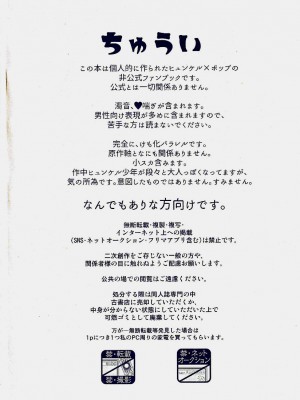 ちゅうい
この本は個人的に作られたヒュンケル×ポップの
非公式ファンブックです。
公式とは一切関係ありません。
濁音、♥喘ぎが含まれます。
男性向け表現が多めに含まれますので、
苦手な方は読まないでください。
完全に、けも化パラレルです。
原作軸となにも関係ありません。
小スカ含みます。
作中ヒュンケル少年が段々と大人っぽくなってますが、
気の所為です。意図したものではありません。すみません。
なんでもありな方向けです。
無断転載・複製・複写・
インターネット上への掲載
(SNS・ネットオークション・フリマアプリ含む)は禁止です。
二次創作をご存じない一般の方や、
関係者様の目に触れぬようご配慮お願いします。
公共の場での閲覧はご遠慮ください。
処分する際は同人誌専門の中
古書店に売却していただくか、
中身が分からない状態にしていただいた上で
可燃ゴミとして廃棄してください。
万が一無断転載等発見した場合は
1pにつき1つ私のPC周りの家電を買ってもらいます。
禁・転載
禁・撮影
禁・ネット
オークション